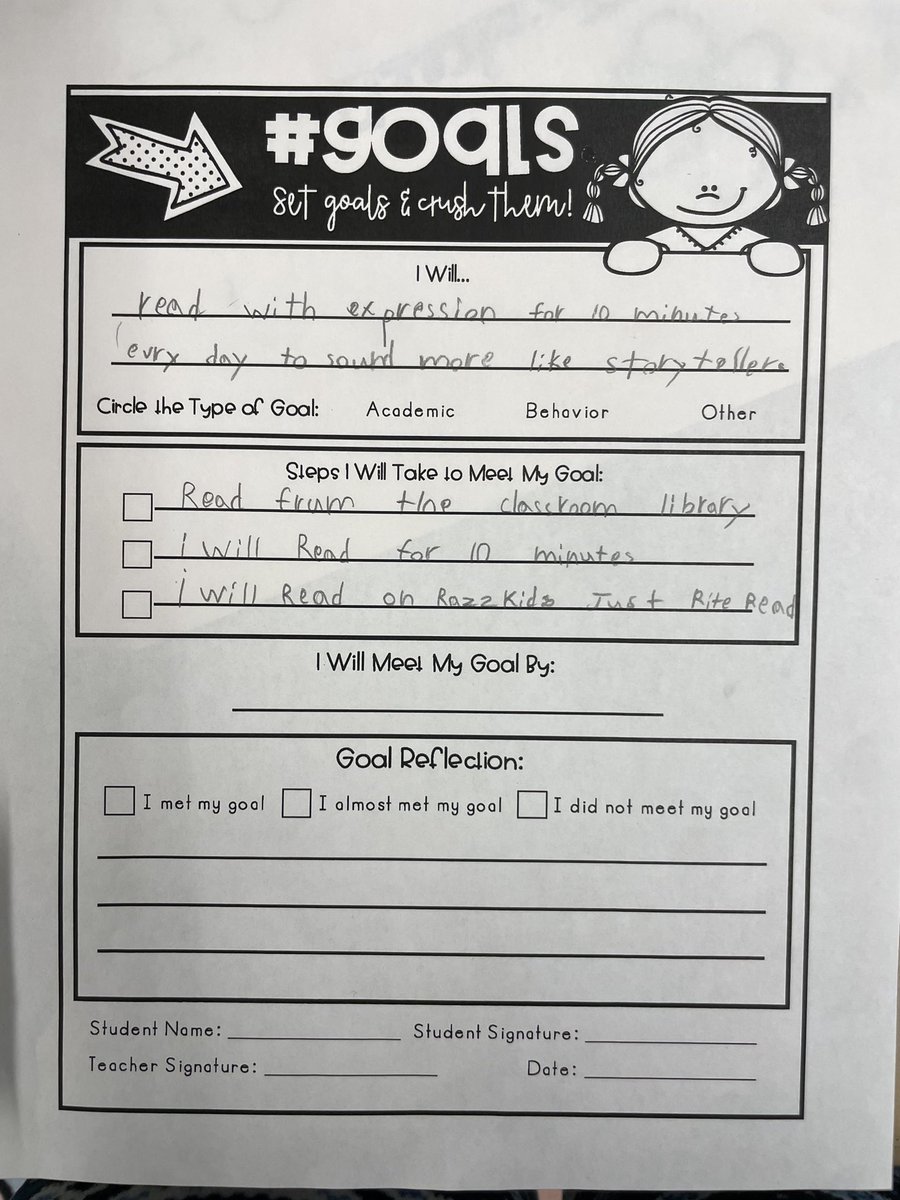 #goals
set goals & crush them!
I Will...
read with expression for 10 minutes
evry day to sound more like storytellers
Circle the Type of Goal: Academic Behavior Other
Steps I Will Take to Meet My Goal:
Read frum the classroom library
i will Read for 10 minutes
i will Read on RazzKids Just Rite Read
I Will Meet My Goal By:
Goal Reflection:
I met my goal I almost met my goal I did not meet my goal
Student Name: Student Signature:
Teacher Signature: Date: